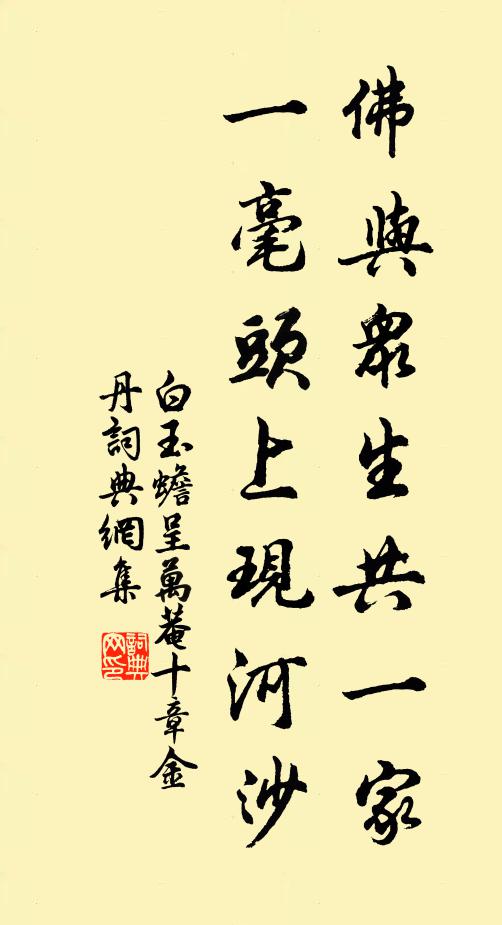 佛與眾生共一家
一毫頭上現河沙
白玉蟾呈萬菴十章金
丹詞典網集
詞典網印